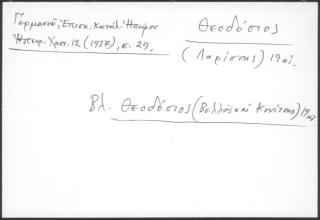 Γερμανοῦ, Ἐπισκ. Κατάλ. Ἠπείρου
Ἠπειρ. Χρον. 12 (1937), σ. 29.
Θεοδόσιος
(Λαρίσσης) 19 αἰ.
Βλ. Θεοδόσιος (Βελλᾶς καὶ Κονίτσης) 19 αἰ